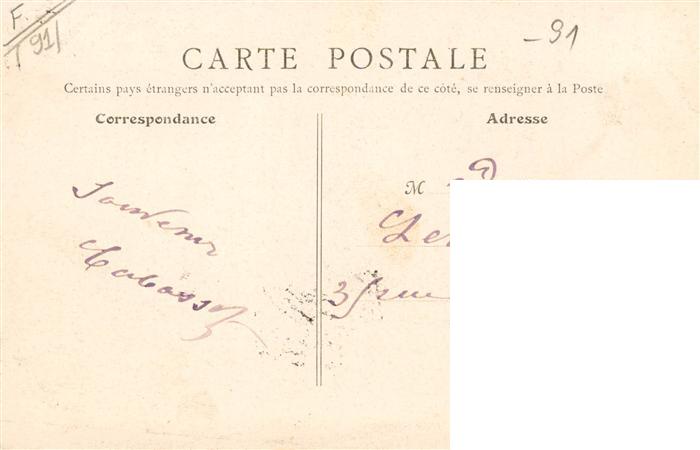 F.
T 91/
-91
CARTE POSTALE
Certains pays étrangers n'acceptant pas la correspondance de ce côté, se renseigner à la Poste
Correspondance
Adresse
Souvenir
M
rue